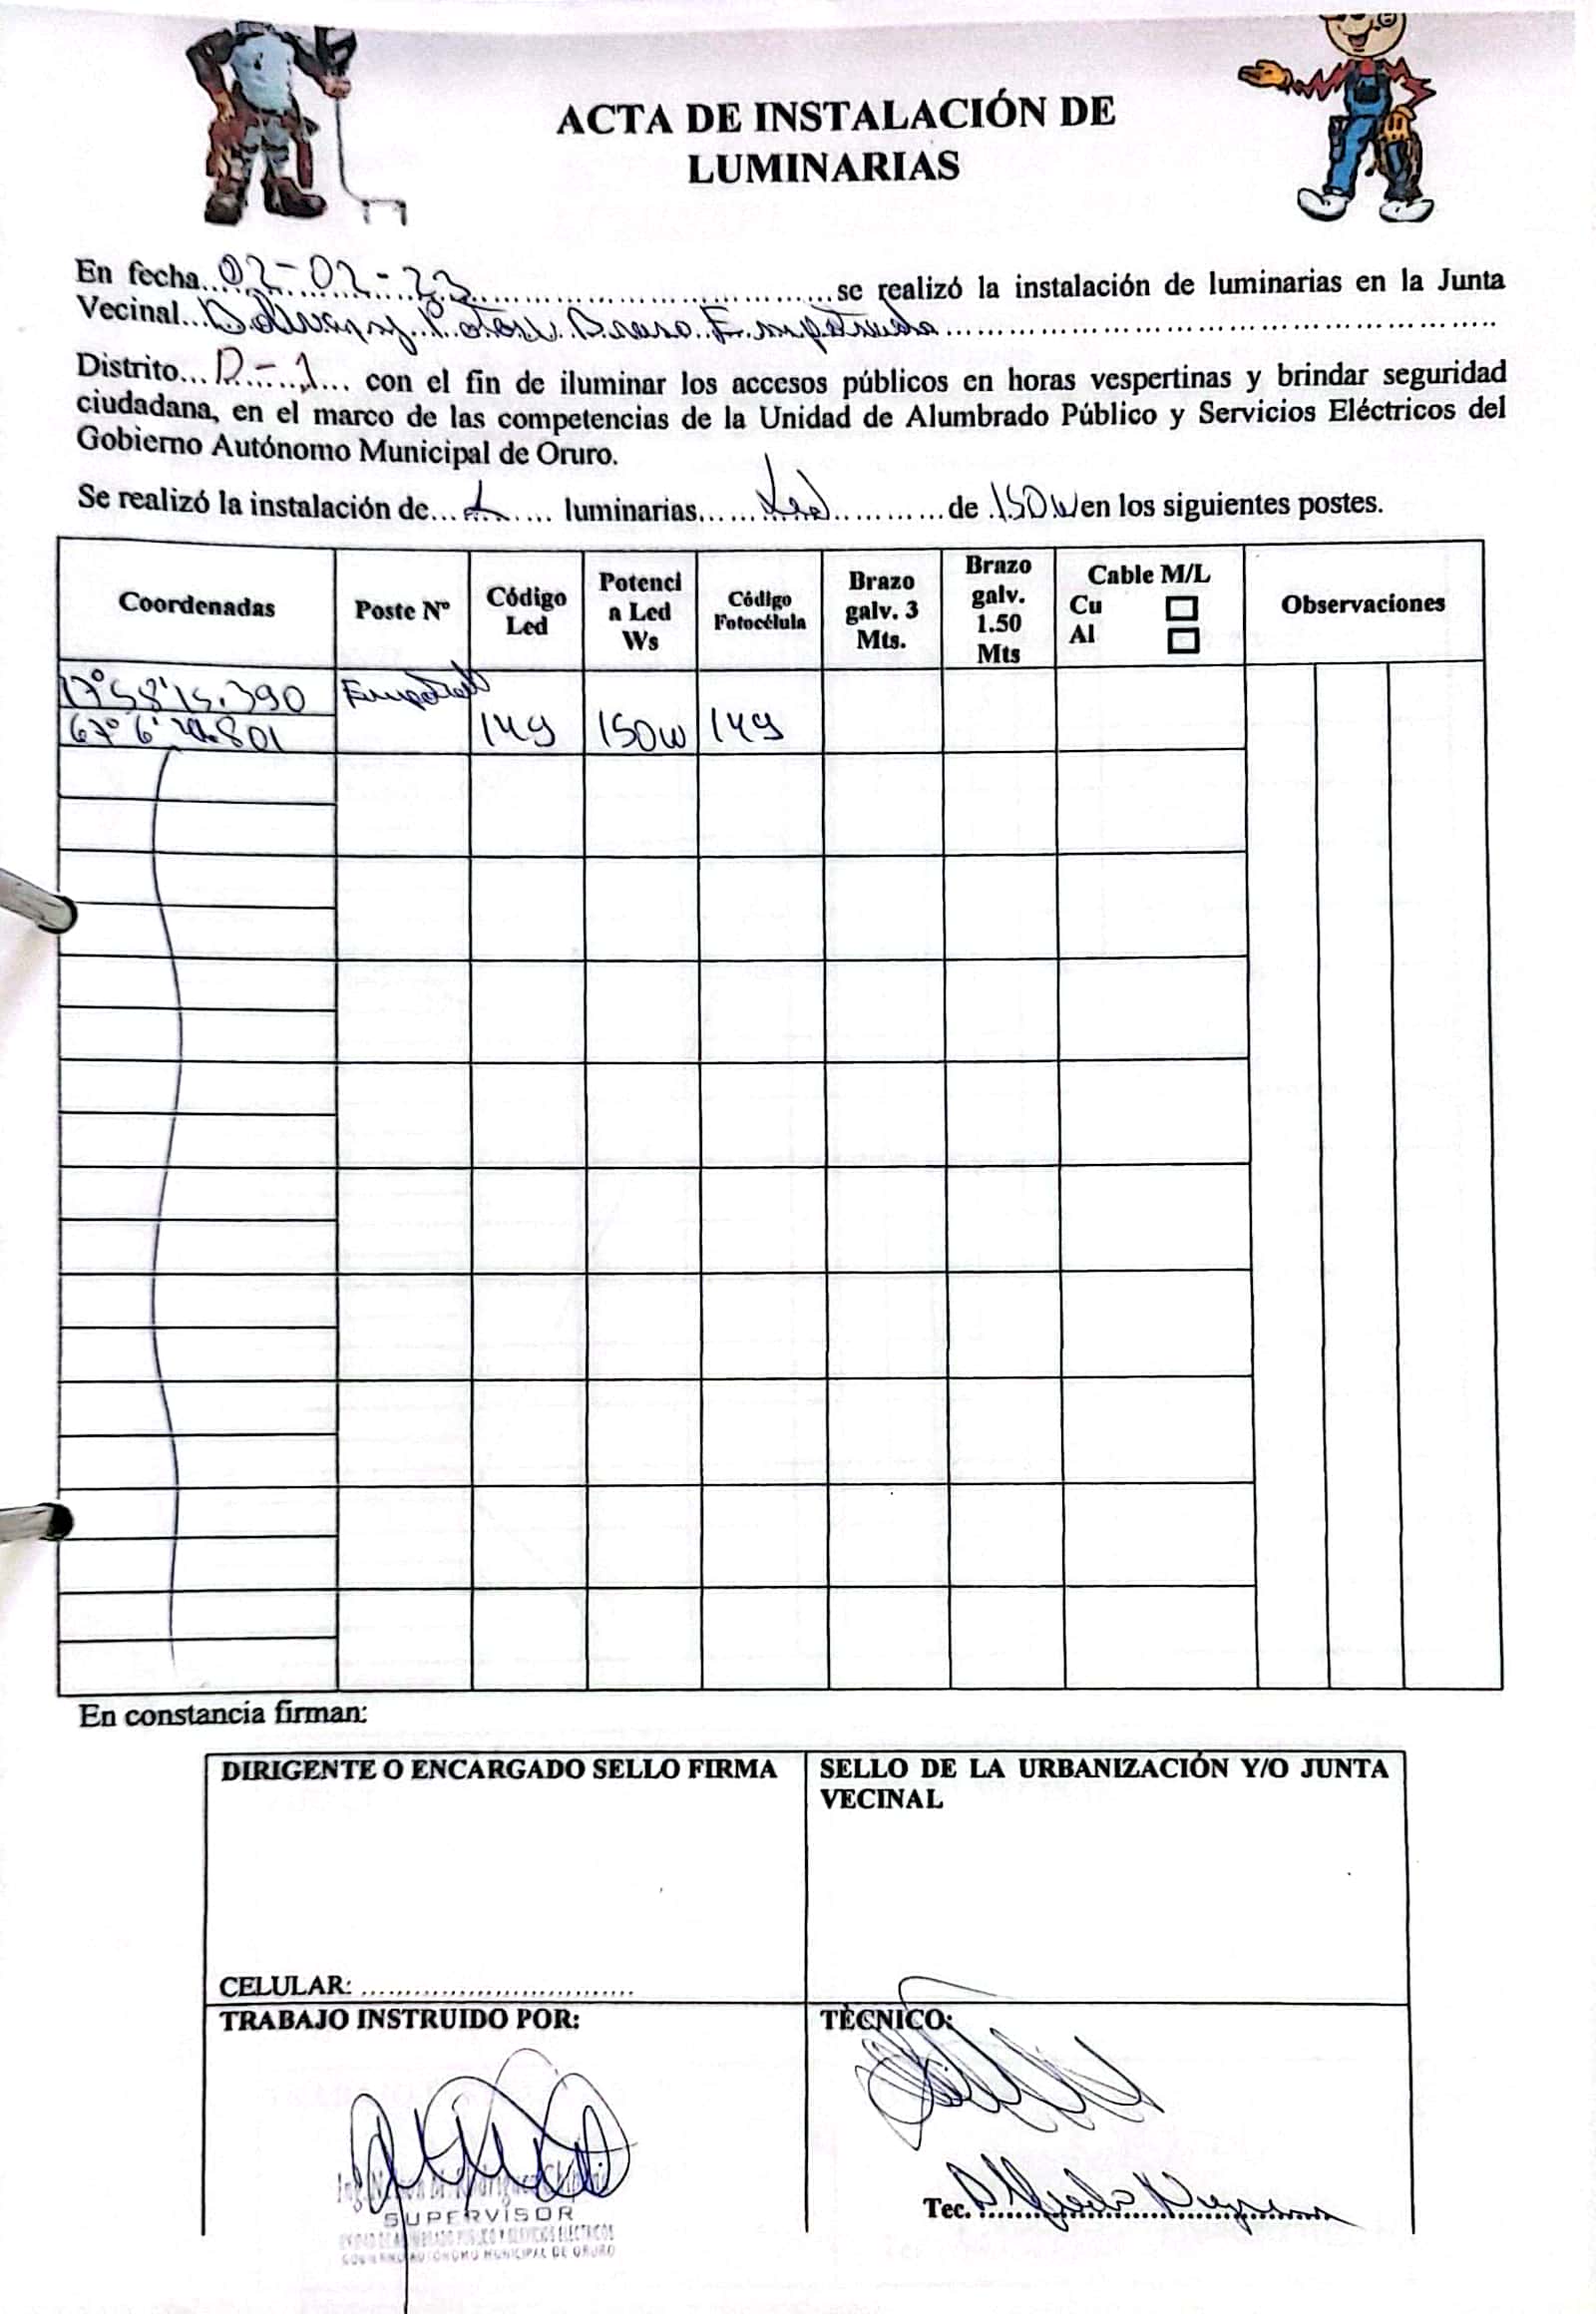 ACTA DE INSTALACIÓN DE
LUMINARIAS
En fecha 02-02-23 se realizó la instalación de luminarias en la Junta
Vecinal Bolivar y Potosi Brazo Empotrado
Distrito D-1 con el fin de iluminar los accesos públicos en horas vespertinas y brindar seguridad
ciudadana, en el marco de las competencias de la Unidad de Alumbrado Público y Servicios Eléctricos del
Gobierno Autónomo Municipal de Oruro.
Se realizó la instalación de 1 luminarias Led de 150w en los siguientes postes.
Coordenadas Poste Nº Código Led Potencia Led Ws Código Fotocélula Brazo galv. 3 Mts. Brazo galv. 1.50 Mts Cable M/L Cu Al Observaciones
17°58'15.390 Empotrado
67°6' .801 149 150w 149
En constancia firman:
DIRIGENTE O ENCARGADO SELLO FIRMA
CELULAR:
SELLO DE LA URBANIZACIÓN Y/O JUNTA
VECINAL
TRABAJO INSTRUIDO POR:
SUPERVISOR
UNIDAD DE ALUMBRADO PUBLICO Y SERVICIOS ELECTRICOS
GOBIERNO AUTONOMO MUNICIPAL DE ORURO
TÈCNICO:
Tec. Alfredo